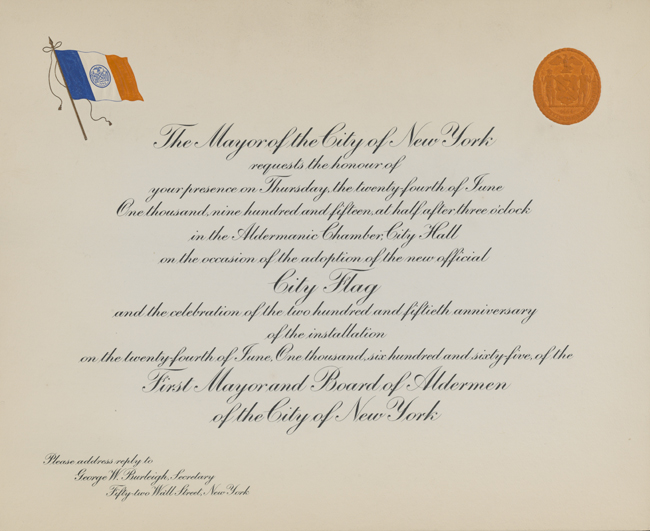 The Mayor of the City of New York
requests the honour of
your presence on Thursday, the twenty-fourth of June
One thousand, nine hundred and fifteen, at half after three o'clock
in the Aldermanic Chamber, City Hall
on the occasion of the adoption of the new official
City Flag
and the celebration of the two hundred and fiftieth anniversary
of the installation
on the twenty-fourth of June, One thousand, six hundred and sixty-five, of the
First Mayor and Board of Aldermen
of the City of New York
Please address reply to
George W. Burleigh, Secretary
Fifty-two Wall Street, New York